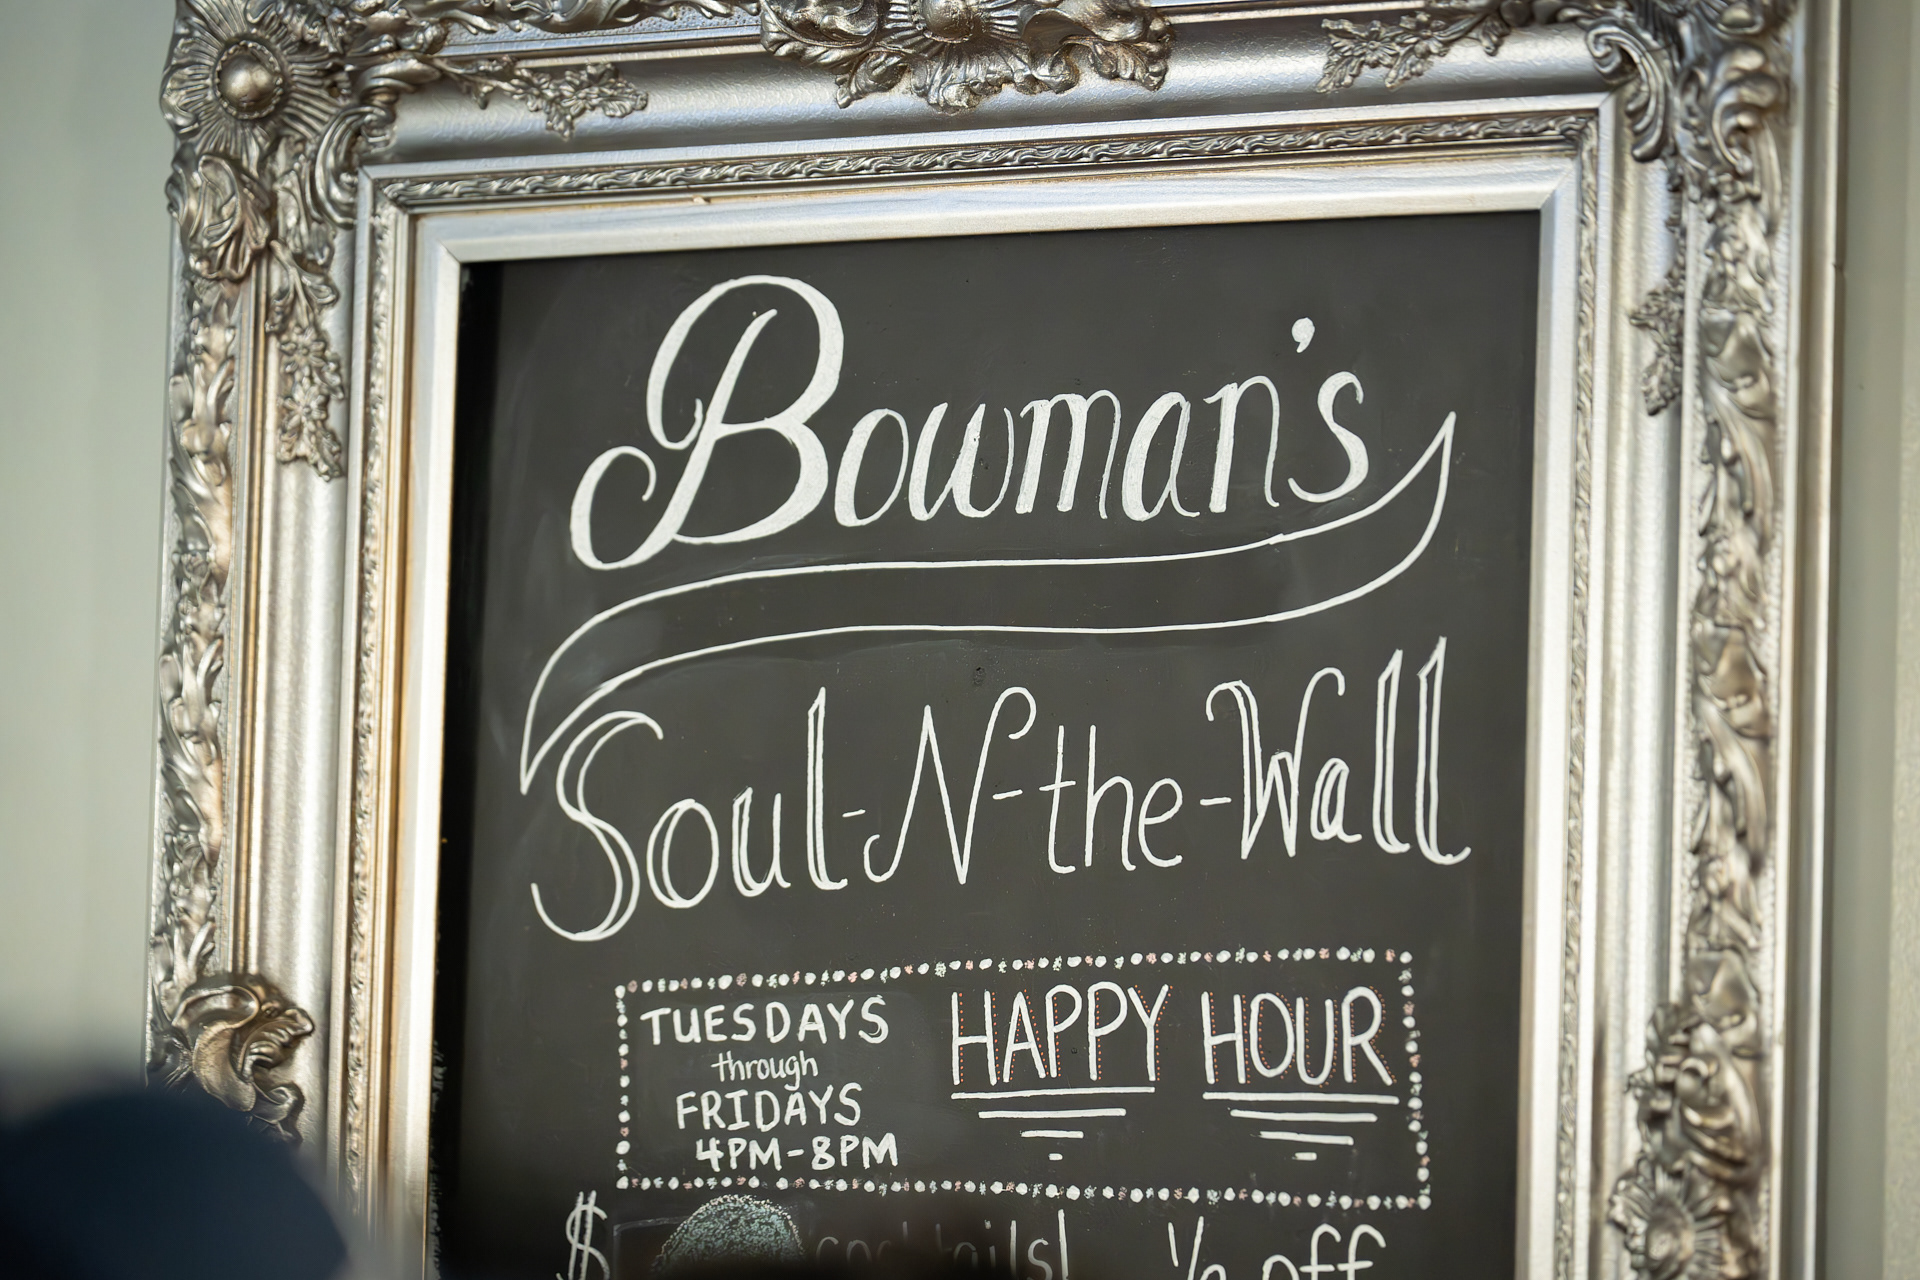 Bowman's
Soul-N-the-Wall
TUESDAYS
through
FRIDAYS
4PM-8PM
HAPPY HOUR
$ cocktails! ½ off